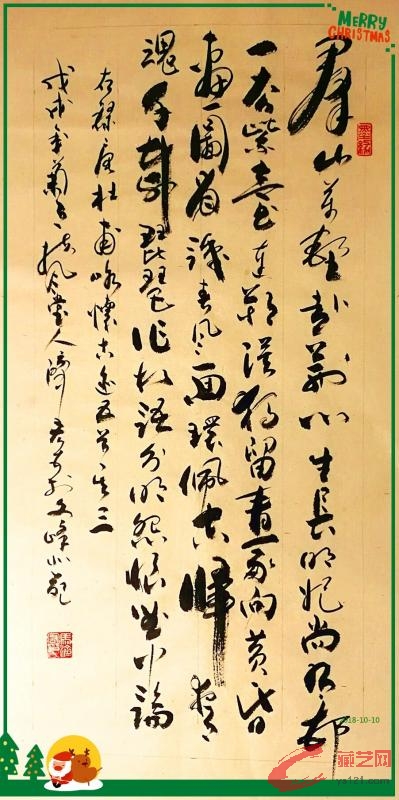 MERRY
CHRISTMAS
羣山萬壑赴荊門生長明妃尚有邨
一去紫臺連朔漠獨留青冢向黃昏
畫圖省識春風面環佩空歸夜月
魂千載琵琶作胡語分明怨恨曲中論
右錄唐杜甫詠懷古迹五首其三
戊戌年菊月
18-10-10
藏艺网